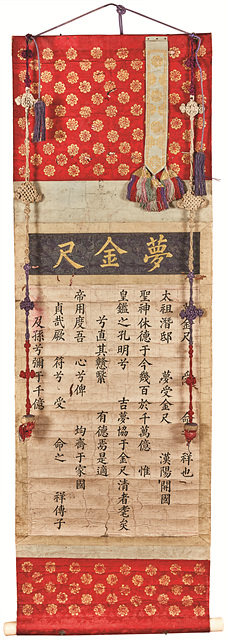 夢金尺
金尺 受 命 祥也
太祖潛邸 夢受金尺 漢陽開國
聖神休德于今幾百於千萬億 惟
皇鑑之孔明兮 吉夢協于金尺清者耄矣
兮直其戇繄 有德焉是適
帝用度吾 心兮俾 均齊于家國
貞哉厥 符兮 受 命之 祥傳子
及孫兮彌于千億